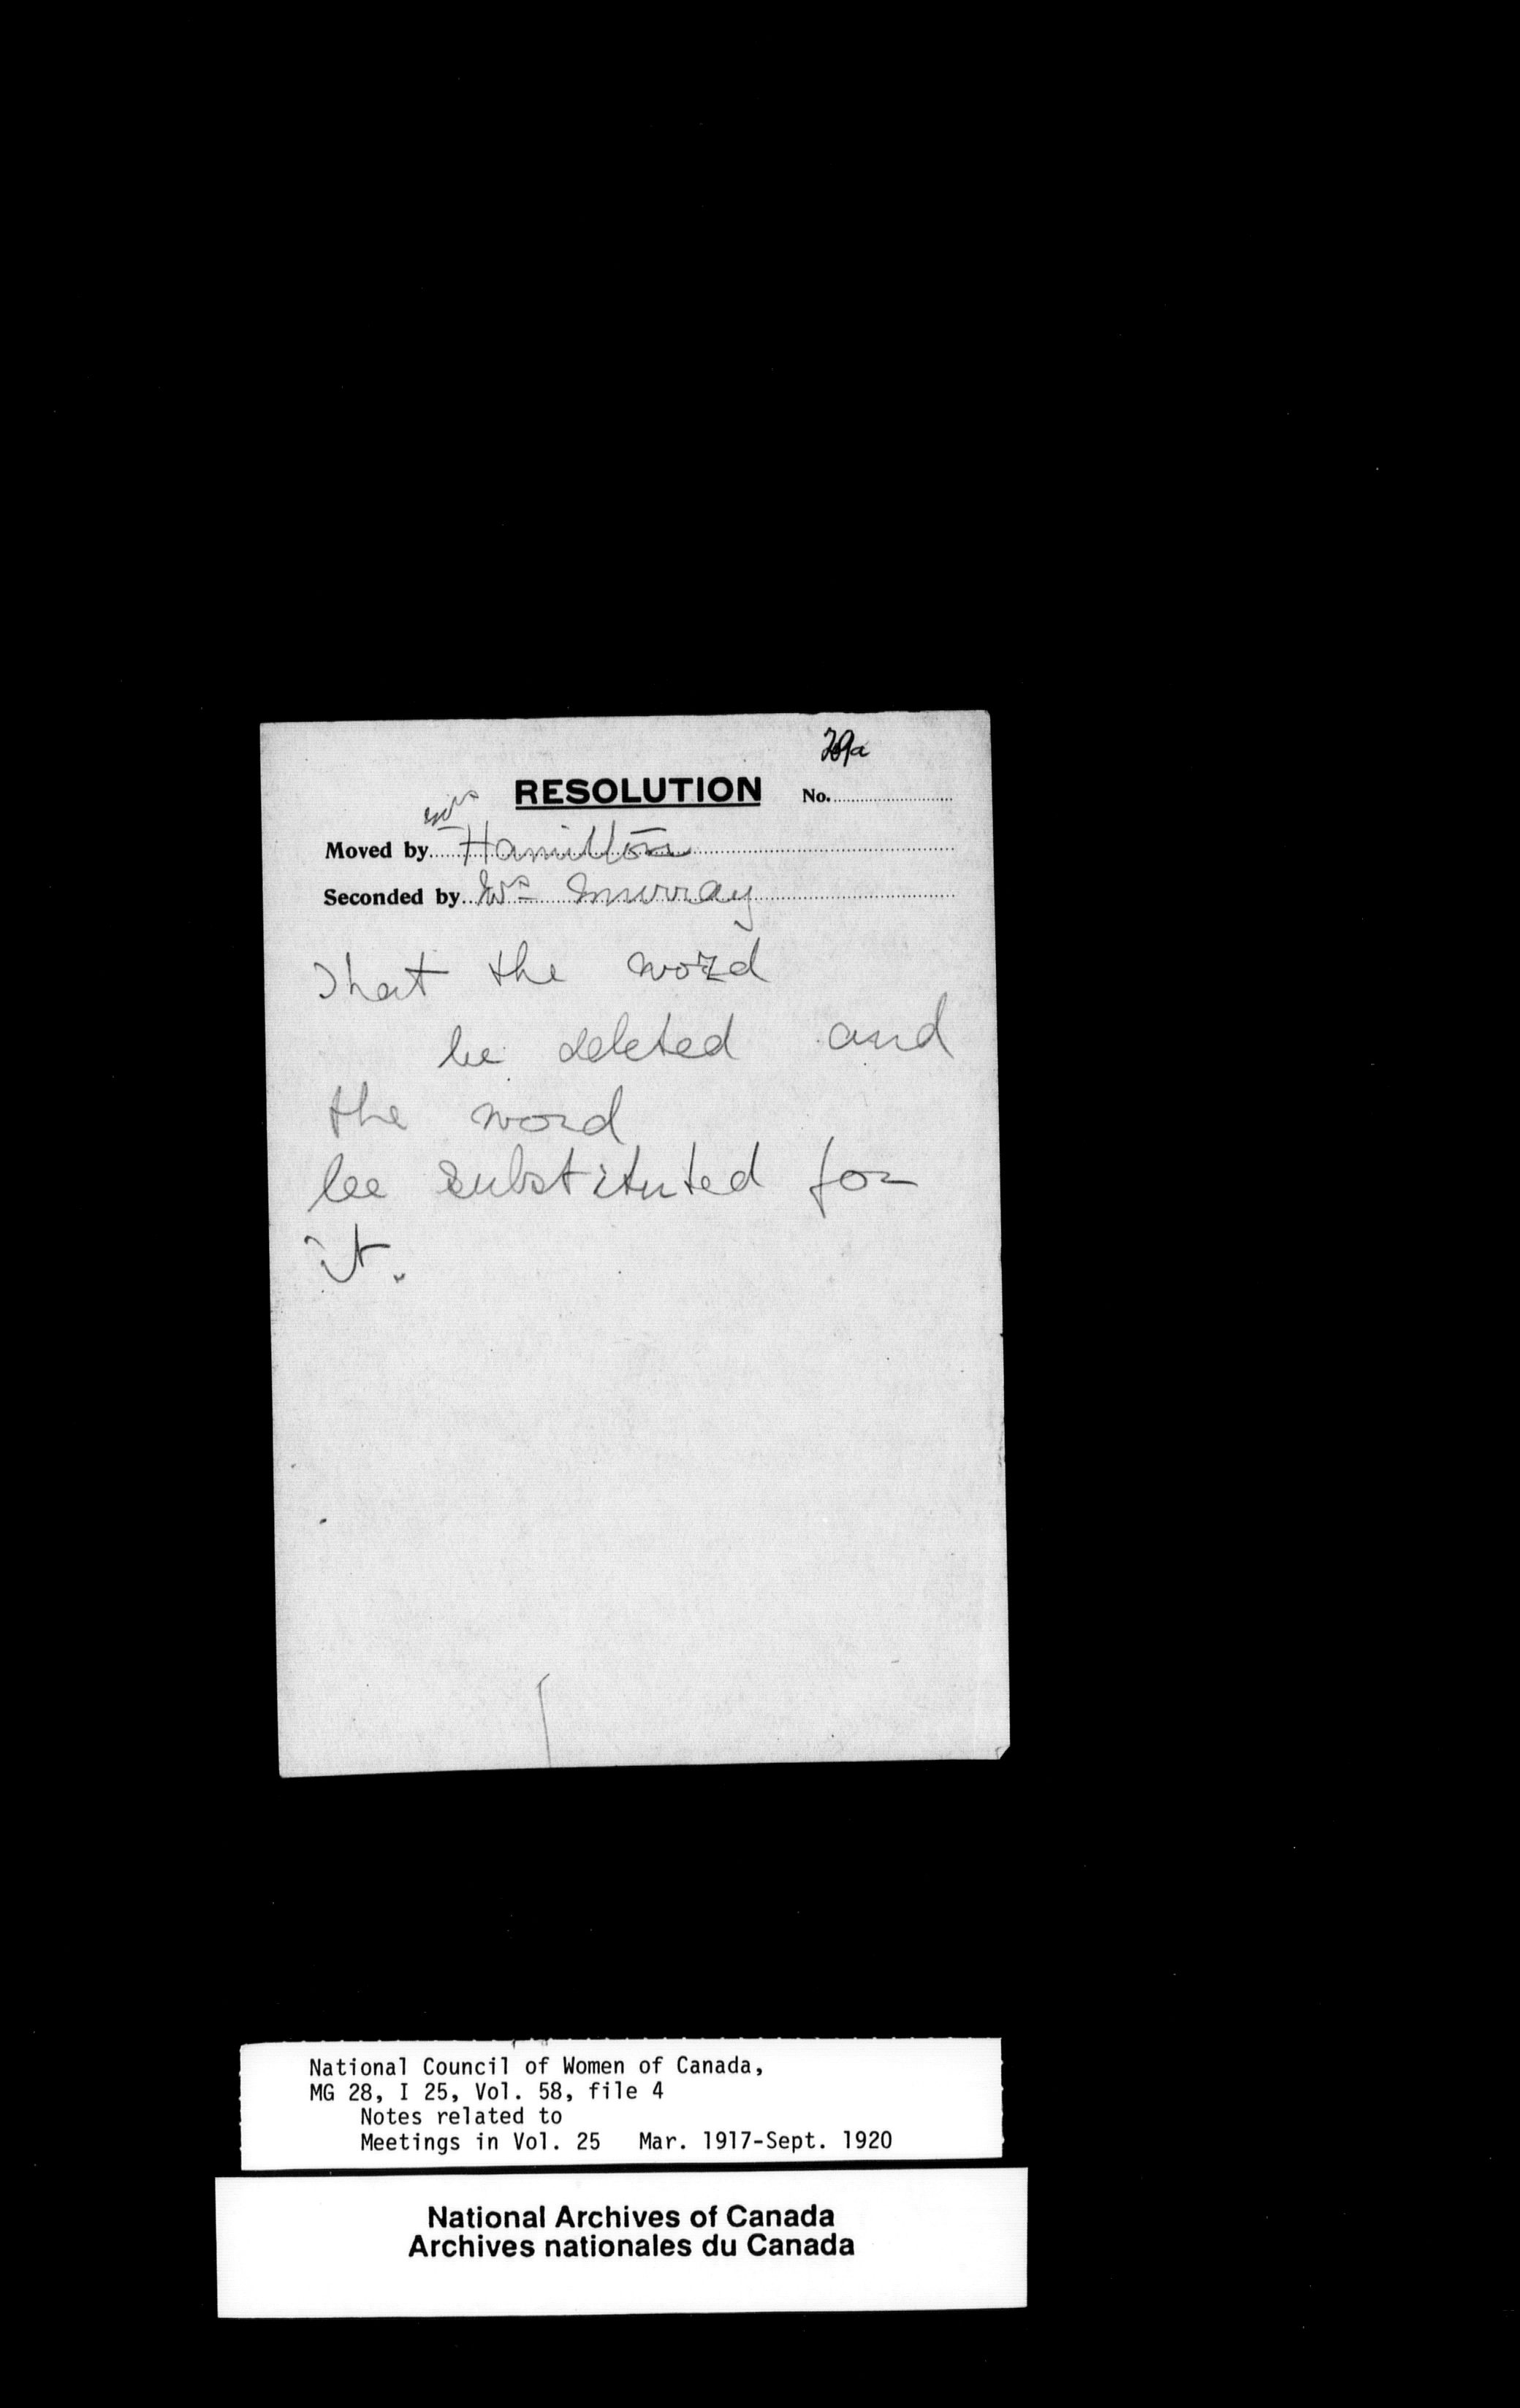 29a
RESOLUTION No.
Mrs
Moved by Hamilton
Seconded by Mrs Murray
That the word
be deleted and
the word
be substituted for
it.
National Council of Women of Canada,
MG 28, I 25, Vol. 58, file 4
Notes related to
Meetings in Vol. 25 Mar. 1917-Sept. 1920
National Archives of Canada
Archives nationales du Canada